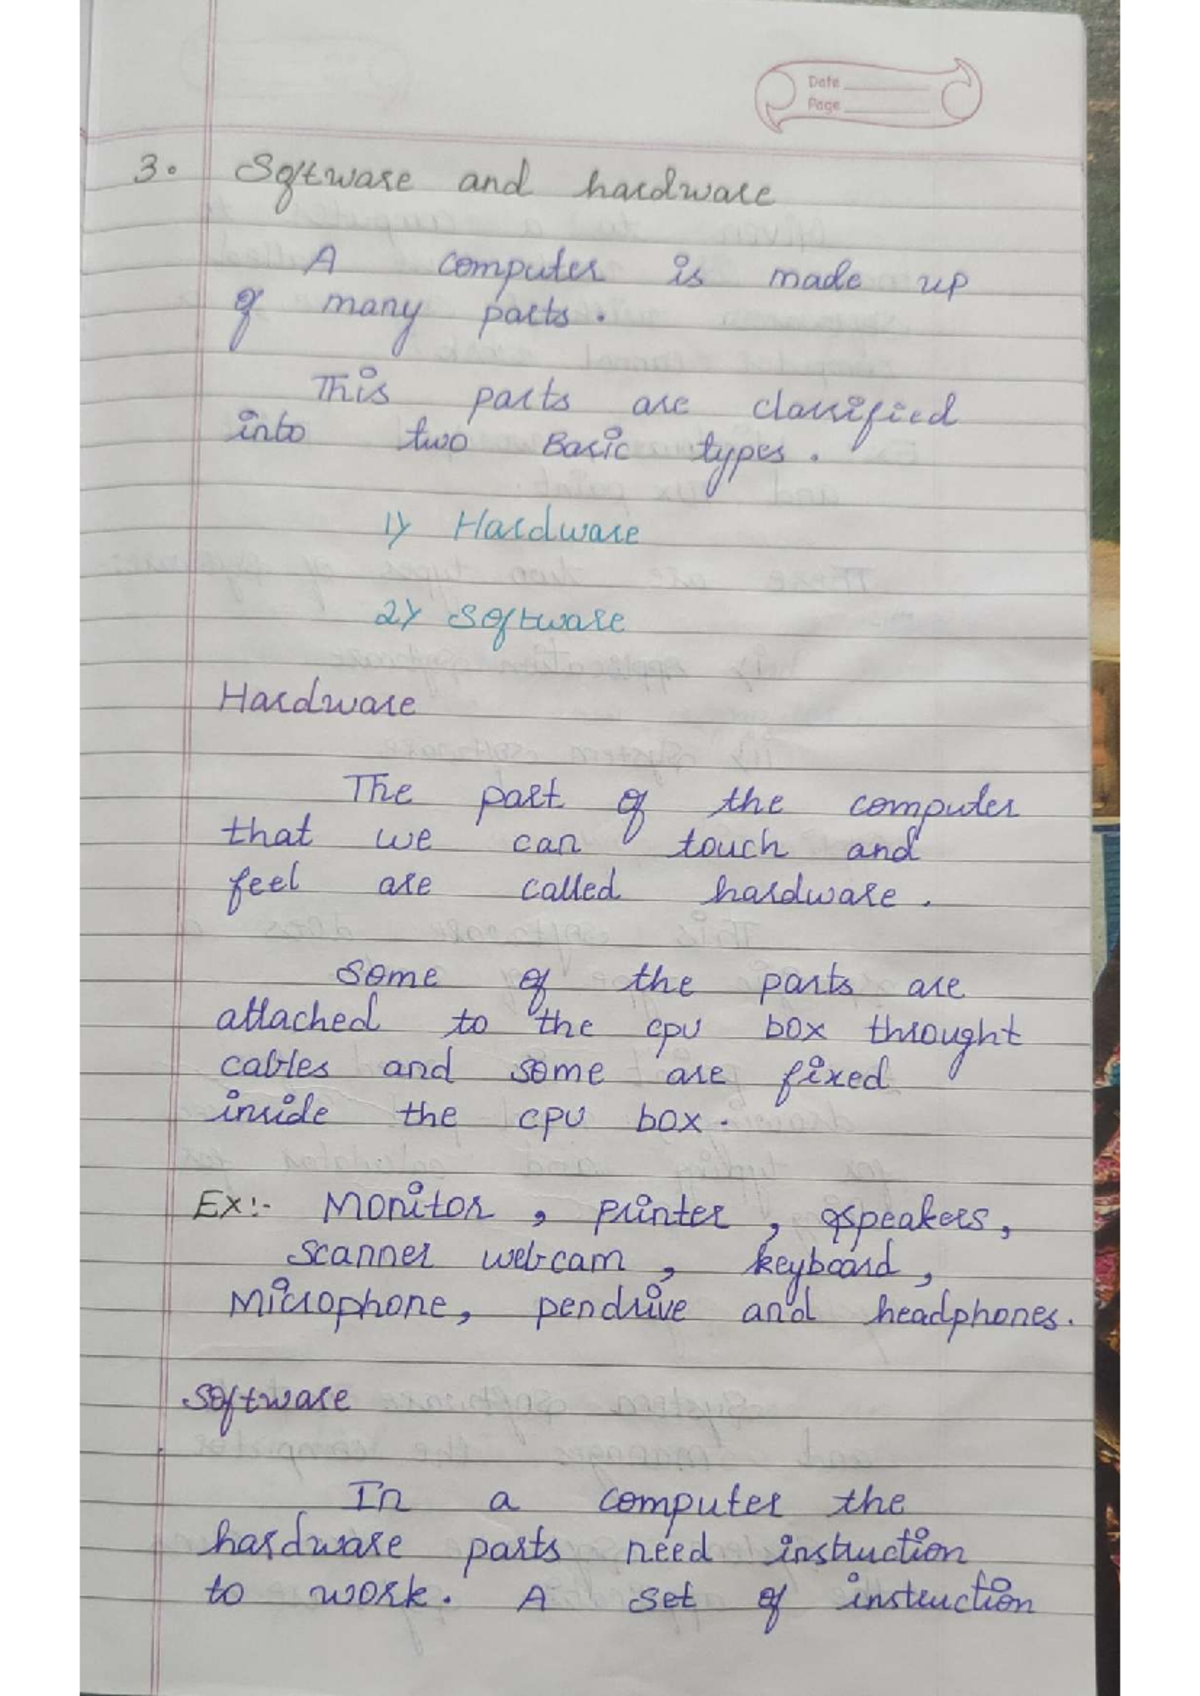 Date
Page
3. Software and hardware
A computer is made up
of many parts.
This parts are classified
into two Basic types.
1) Hardware
2) Software
Hardware
The part of the computer
that we can touch and
feel are called hardware.
Some of the parts are
attached to the cpu box throught
cables and some are fixed
inside the cpu box.
Ex:- Monitor, printer, speakers,
scanner webcam, keyboard,
Microphone, pendrive and headphones.
Software
In a computer the
hardware parts need instruction
to work. A set of instruction